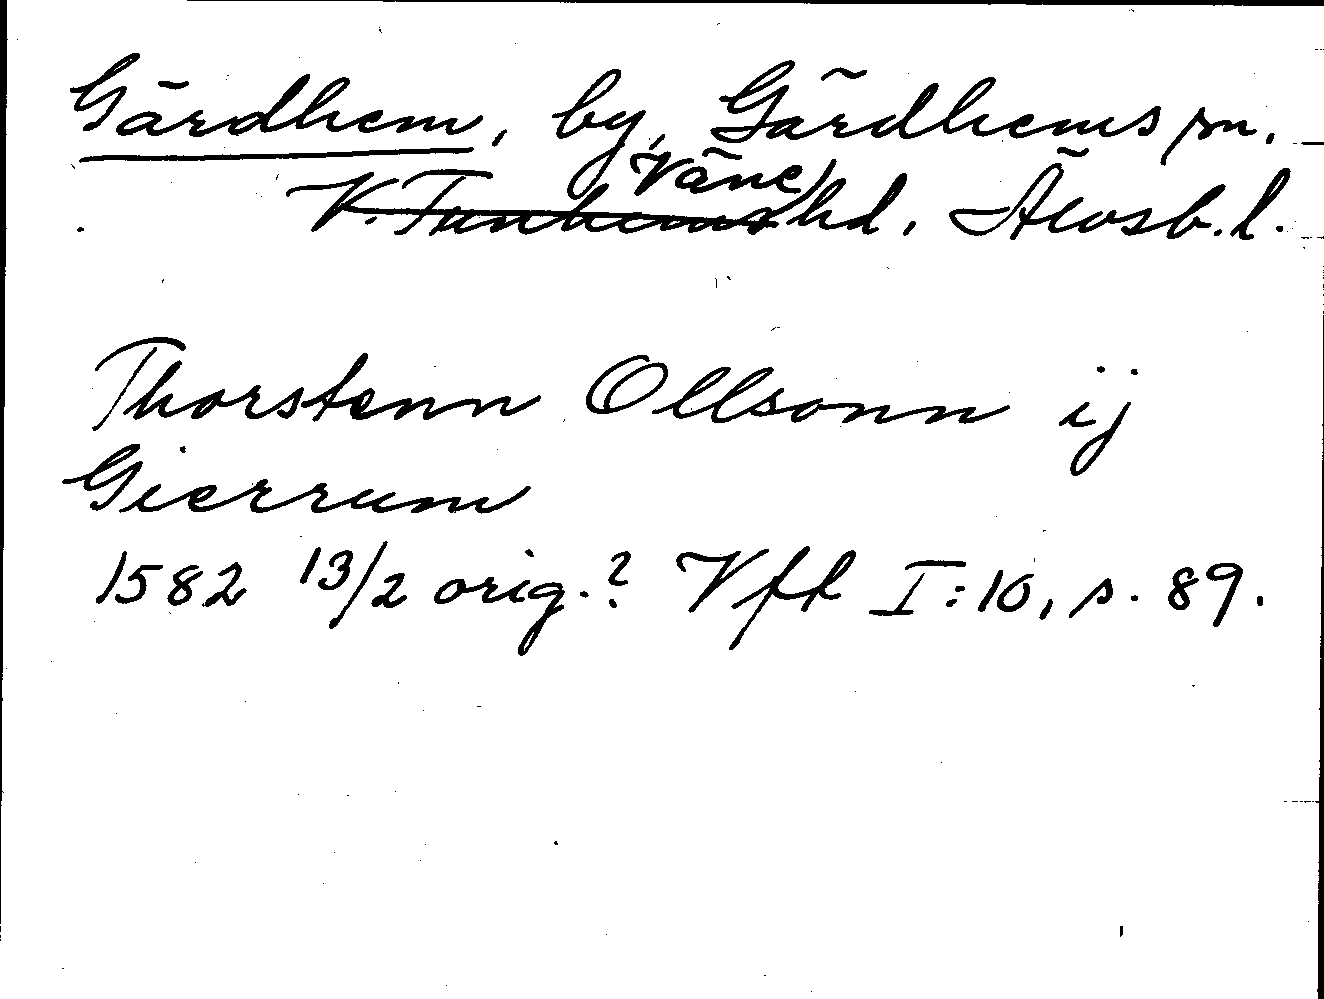 Gärdhem, by, Gärdhems sn.
Väne
V. Tunhems hd, Älvsb. l.
Thorstenn Ollsonn ij
Gierrum
1582 13/2 orig.? Vfl I:10, s. 89.